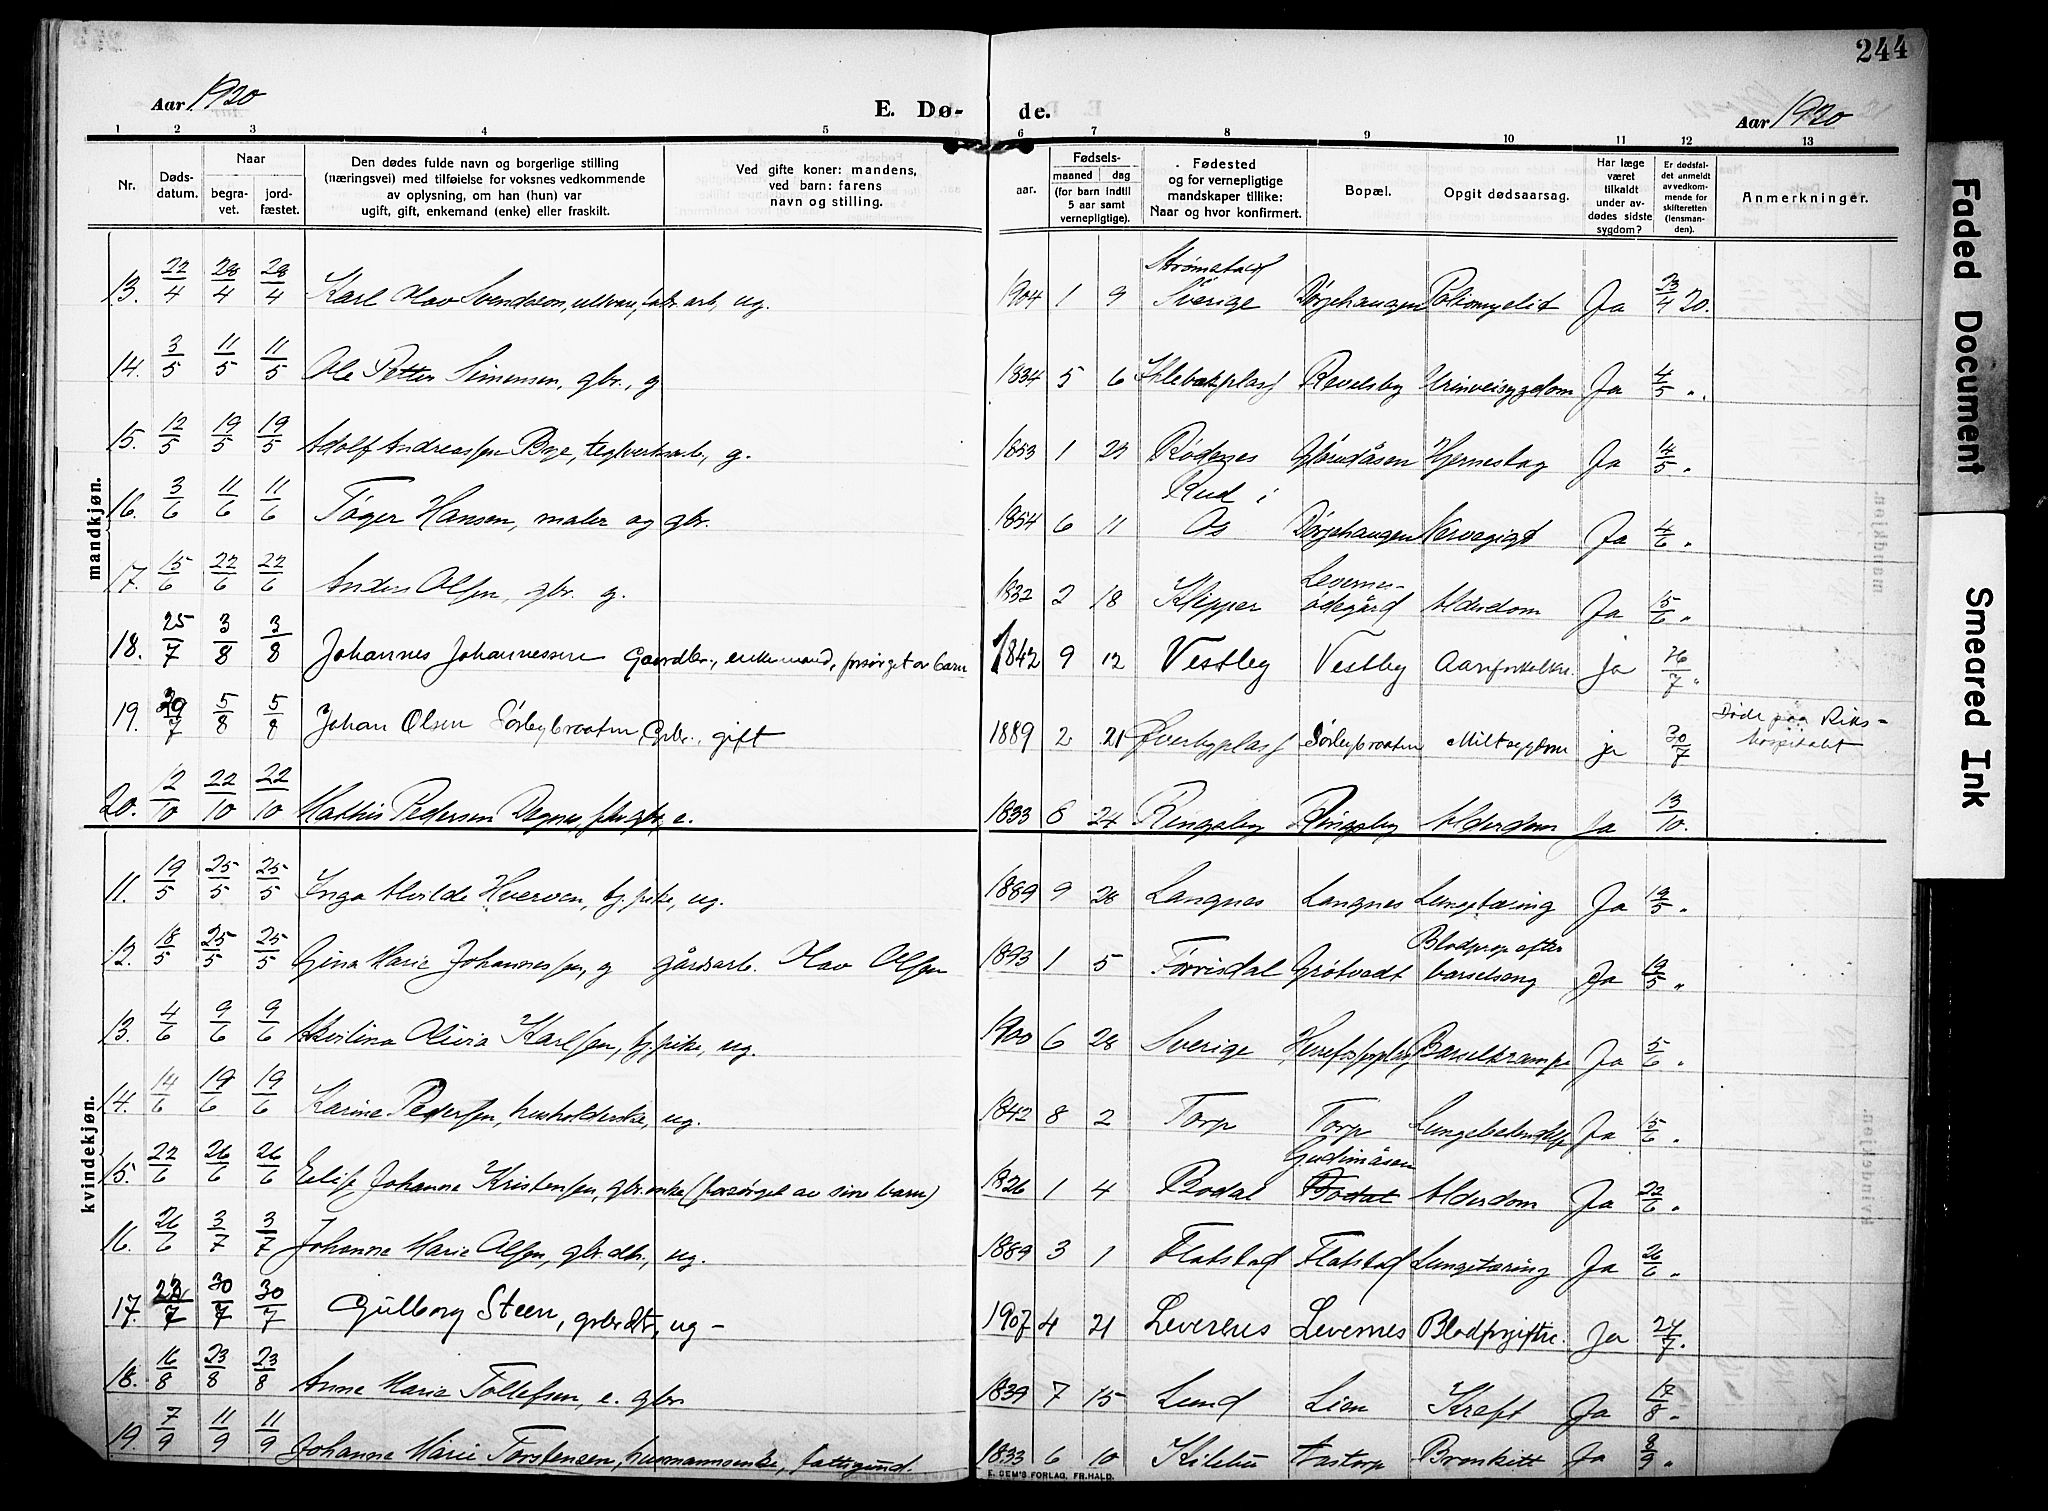 244
Aar 1920
E. Dø-
de.
Aar 1920
1 2 3 4 5 6 7 8 9 10 11 12 13
Nr.
Døds-
datum.
Naar
begra-
vet.
jord-
fæstet.
Den dødes fulde navn og borgerlige stilling
(næringsvei) med tilføielse for voksnes vedkommende
av oplysning, om han (hun) var
ugift, gift, enkemand (enke) eller fraskilt.
Ved gifte koner: mandens,
ved barn: farens
navn og stilling.
Fødsels-
aar.
maaned dag
(for barn indtil
5 aar samt
vernepligtige).
Fødested
og for vernepligtige
mandskaper tillike:
Naar og hvor konfirmert.
Bopæl.
Opgit dødsaarsag.
Har læge
været
tilkaldt
under av-
dødes sidste
sygdom?
Er dødsfal-
det anmeldt
av vedkom-
mende for
skifteretten
(lensman-
den).
Anmerkninger.
mandkjøn.
13. 22/4 28/4 28/4 Karl Olav Svendsen, ug. 1904 1 9 Strømstad Sverige Dørjehaugen Poliomyelit Ja 23/4 20.
14. 3/5 11/5 11/5 Ole Petter Simensen, gbr., g 1834 5 6 Revelsby Urinveisygdom Ja 4/5 "
15. 12/5 19/5 19/5 Adolf Andreassen Bye, teglverksarb., g. 1853 1 Rødenes Hjerneslag Ja 14/5 "
16. 3/6 11/6 11/6 Tøger Hansen, maler og gbr. 1854 6 11 Rud i Os Dørjehaugen Ja 4/6 "
17. 15/6 22/6 22/6 Anders Olsen, gbr. g. 1832 2 18 Klipper Levernes-ødegård Alderdom Ja 15/6 "
18. 25/7 3/8 3/8 Johannes Johannessen Gaardbr., enkemand, forsørget av barn 1842 9 12 Vestby Vestby Aareforkalkn. ja 26/7 "
19. 29/7 5/8 5/8 Johan Olsen Sørlybraaten Gbr., gift 1889 2 21 Øverbyplass Sørbybraaten Miltsygdom ja 30/7 Døde paa Riks-hospitalet
20. 12/10 22/10 22/10 Mathis Pedersen e. 1833 8 24 Ringsby Ringsby Alderdom Ja 13/10.
kvindekjøn.
11. 19/5 25/5 25/5 Inga Alvilde Hverven, tj.pike, ug. 1889 9 28 Langnes Langnes Lungetæring Ja 19/5 "
12. 18/5 25/5 25/5 Gina Marie Johannessen, g gårdsarb. Olav Olsen 1893 1 5 Torrisdal Grøtvedt Blodprop efter barselseng Ja 19/5 "
13. 4/6 9/6 9/6 Olivia Karlsen, tj.pike, ug. 1900 6 28 Sverige Barselkrampe Ja 5/6 "
14. 14/6 19/6 19/6 Karine Pedersen, husholderske, ug. 1842 8 2 Torp Torp Lungebetændelse Ja 15/6 "
15. 22/6 26/6 26/6 Johanne Kristensen, gbr.enke (forsørget av sine barn) 1826 1 4 Bodal Gudimåsen Bodal Alderdom Ja 22/6 "
16. 26/6 3/7 3/7 Johanne Marie Olsen, gbr.dtr., ug. 1889 3 1 Flatstad Flatstad Lungetæring Ja 26/6 "
17. 30/7 30/7 Gulborg Steen, gbr.dtr., ug - 1907 4 21 Levernes Levernes Blodforgiftn. Ja 24/7.
18. 16/8 23/8 23/8 Anne Marie Tollefsen, e. gbr. 1839 7 15 Lund Lien Kreft Ja 17/8 "
19. 7/9 11/9 11/9 Johanne Marie Torstensen, husmannsenke, fattigund. 1833 6 10 Kilebu Aastorp Bronkitt Ja 8/9 "
E. SEM'S FORLAG, FR.HALD.
Faded Document
Smeared Ink